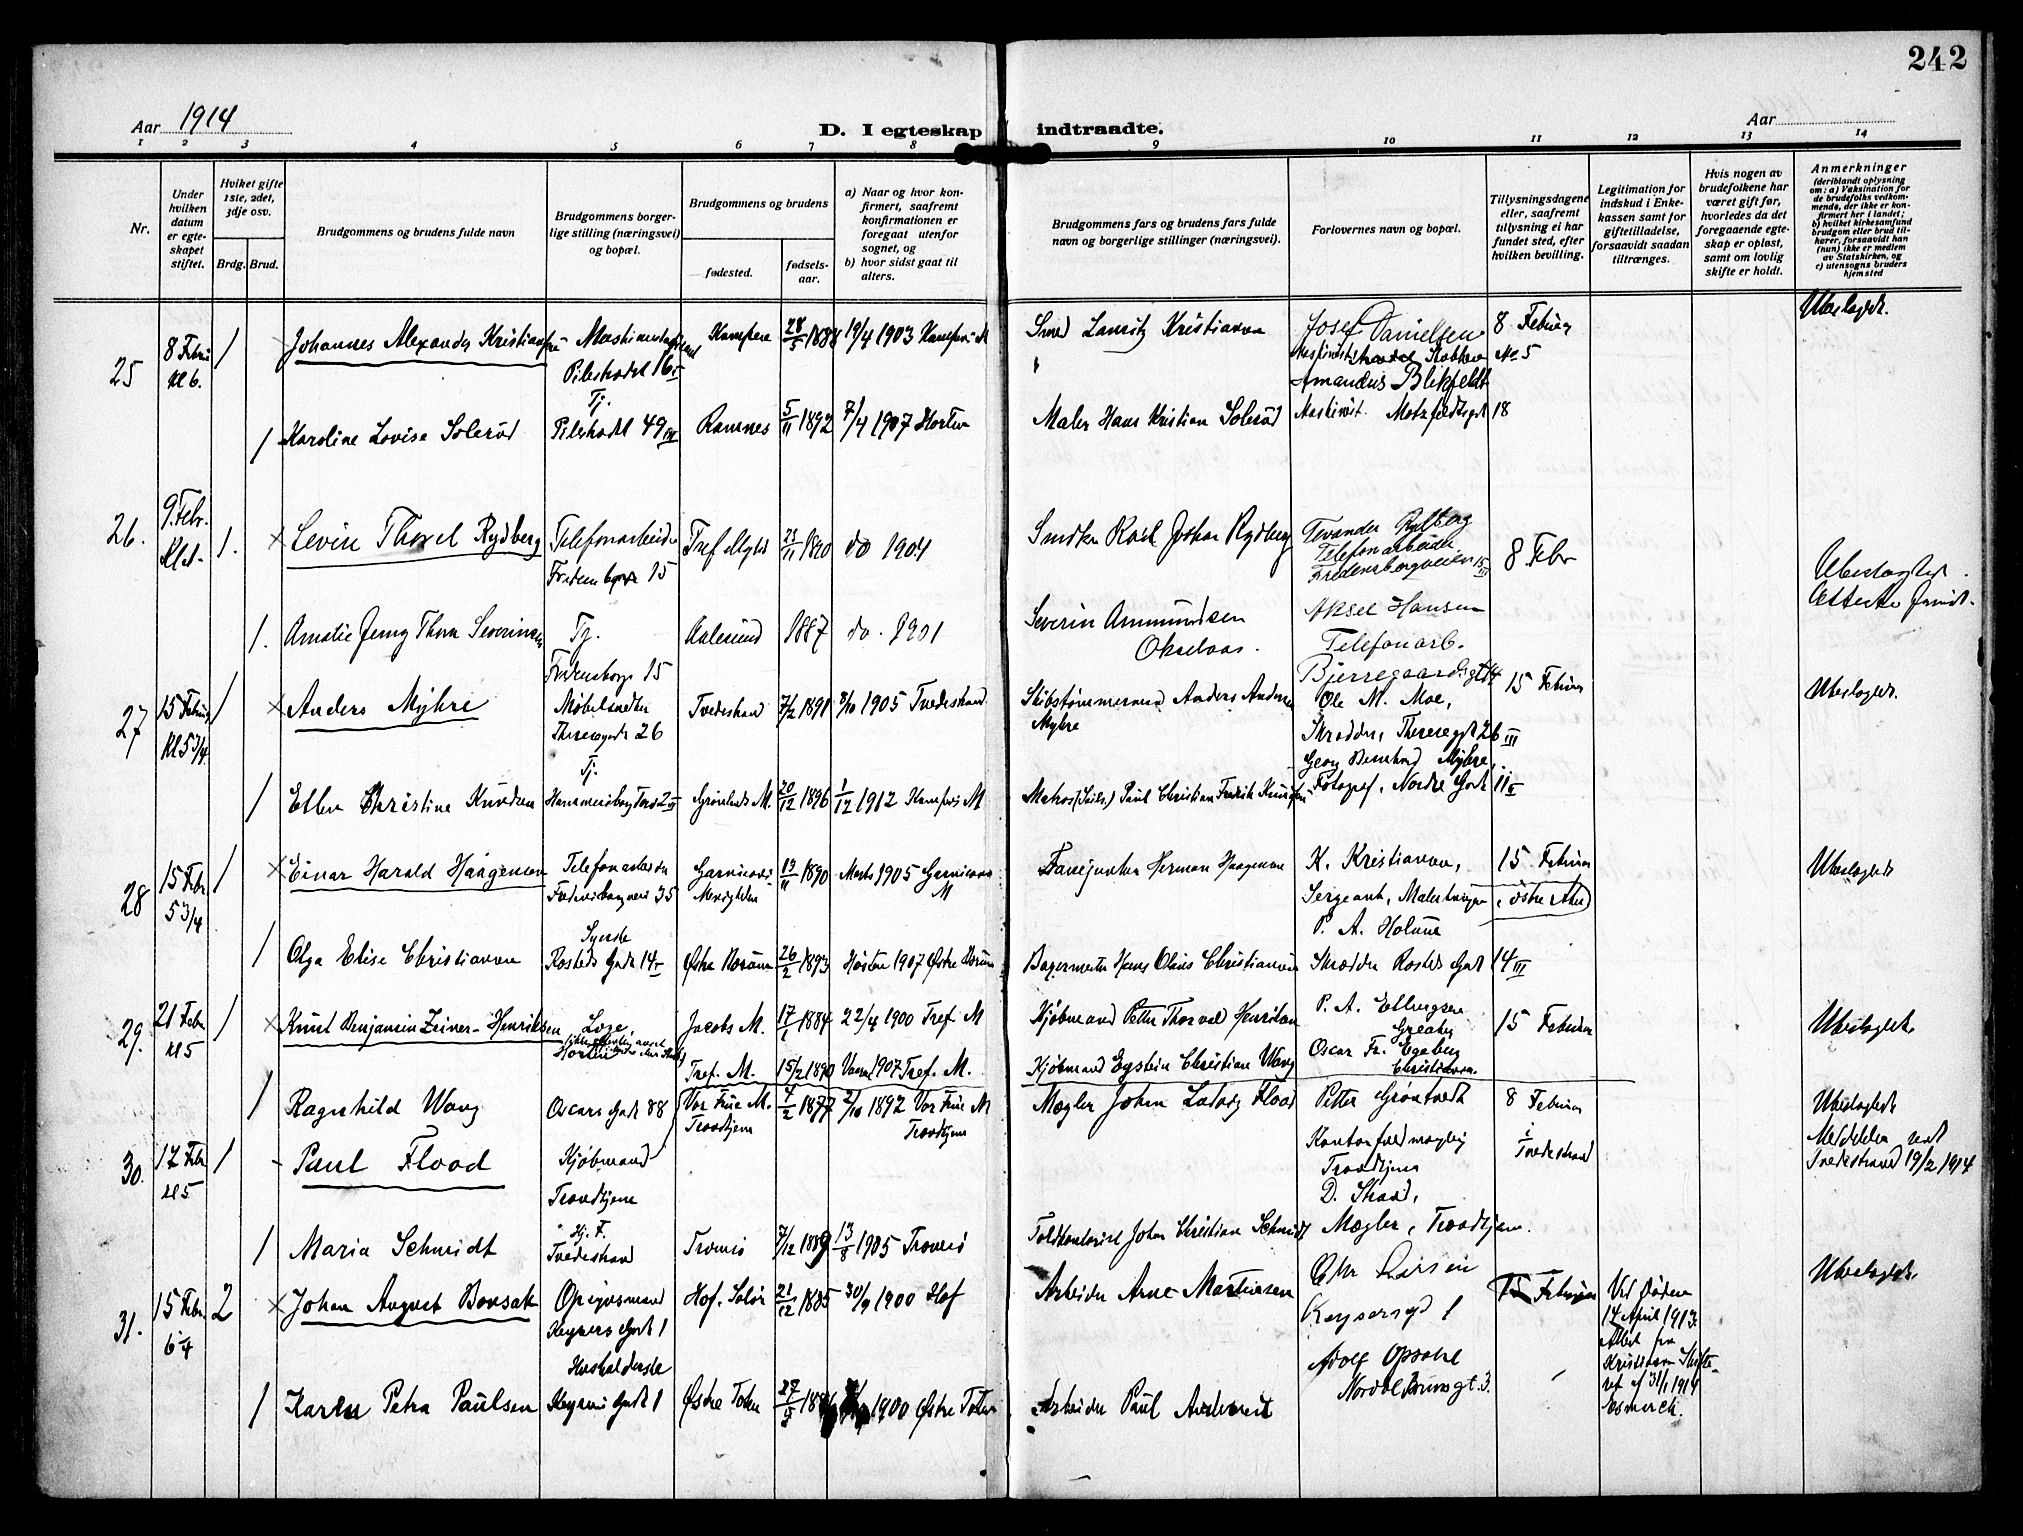 242
Aar 1914
D. I egteskap indtraadte.
Aar
1 2 3 4 5 6 7 8 9 10 11 12 13 14
Nr.
Under hvilken datum er egteskapet stiftet.
Hvilket gifte 1ste, 2det, 3dje osv.
Brdg. Brud.
Brudgommens og brudens fulde navn
Brudgommens borgerlige stilling (næringsvei) og bopæl.
Brudgommens og brudens
fødested.
fødselsaar.
a) Naar og hvor konfirmert, saafremt konfirmationen er foregaat utenfor sognet, og
b) hvor sidst gaat til alters.
Brudgommens fars og brudens fars fulde navn og borgerlige stillinger (næringsvei).
Forlovernes navn og bopæl.
Tillysningsdagene eller, saafremt tillysning ei har fundet sted, efter hvilken bevilling.
Legitimation for indskud i Enkekassen samt for giftetilladelse, forsaavidt saadan tiltrænges.
Hvis nogen av brudefolkene har været gift før, hvorledes da det foregaaende egteskap er opløst, samt om lovlig skifte er holdt.
Anmerkninger
(deriblandt oplysning om: a) Vaksination for de brudefolks vedkommende, der ikke er konfirmert her i landet; b) hvilket kirkesamfund brudgom eller brud tilhører, forsaavidt han (hun) ikke er medlem av Statskirken, og c) utensogns bruders hjemsted
25 8 Febr Kl 6. 1 Johannes Alexander Kristiansen
Pilestrædet 16
28/5 1888 19/4 1903
Smed Lauritz Kristiansen
Josef Danielsen
Amandus Blikfeldt
8 Februar
No 5
Ubeslegtet.
1 Karoline Lovise Solerød
Tj.
Pilestrædet 49
Ramnes 5/11 1892 7/4 1907 Horten
Maler Hans Kristian Solerød
Maskinist. Motzfeldtsgt 18
26. 9. Febr. 1. Levin Thorel Rydberg
Telefonarbeider
Fredensborgv 15
do 1904
Karl Johan Rydberg
Telefonarbeider
Fredensborgveien 15
8 Febr
Ubeslegtet.
1. Amalie Jenny Thora Severinsen
Tj.
Fredensborgv 15
Aalesund 1887 do. 1901
Severin Ammundsen
Okselaas.
Aksel Hansen
Telefonarb.
Bjerregaardsgt 14
27 15 Februar Kl 5 3/4 1 Anders Myhre
Møbelsnedker
Theresegade 26
Tvedestrand 7/2 1891 8/10 1905 Tvedestrand
Skibstømmermand Anders Andersen
Myhre
Ole M. Moe,
Skrædder, Theresegt 26 III
Georg Bernhard Myhre,
Fotograf, Nordre Gade 11
15 Februar
Ubeslegtet.
1 Ellen Christine Knudsen
Tj.
Grønlands M. 20/12 1896 1/12 1912
Matros Paul Christian Fredrik Knudsen
28 15 Febr 5 3/4 1 Einar Harald Haagensen
Telefonarbeider
Fredensborgvei 35
19/11 1890 1905
Herman Haagensen
K. Kristiansen,
Sergeant,
P. A. Holum
15 Februar
Ubeslegtet
1 Olga Elise Christiansen
Syerske
Rosteds Gade 14
Østre Bærum 26/2 1893 Høsten 1907 Østre Bærum
Bagermester Hans Olaus Christiansen
Skrædder Rosteds Gade 14 III
29. 21 Febr Kl 5 1 Knut Benjamin Zeiner-Henriksen
Læge,
Horten
Jacobs M. 17/7 1884 22/4 1900 Tref M
Kjøbmand Petter Thorvald Henriksen
P. A. Ellingsen
Oscar Fr. Egeberg
Christiania.
15 Februar
Ubeslegtet
1 Ragnhild Wang
Oscars Gade 88
Tref. M. 15/2 1890 1907 Tref. M.
Kjøbmand Eystein Christian Wang
30. 17 Febr Kl 5 1 Paul Flood
Kjøbmand
Trondhjem
Vor Frue M. Trondhjem 4/2 1877 2/10 1892 Vor Frue M Trondhjem
Mægler Johan Ludvig Flood
Petter Grøntvedt
Trondhjem
D. Strand,
Mægler, Trondhjem.
8 Februar
i Tvedestrand
Ubeslegtet
Meddelelse sendt
Tvedestrand 19/2 1914
1 Maria Schmidt
Hj. F.
Tvedestrand
Tromsø 7/12 1889 13/8 1905 Tromsø
Toldkontorist Johan Christian Schmidt
31. 15 Febr. 6 1/4 2 Johan August Bonsak
Opsynsmand
Keysers Gade 1
Hof. Solør 21/12 1885 30/9 1900 Hof
Arbeider Arne Martinsen
Chr Larsen
Keysersgt 1
Adolf Opsahl
Nordal Brunsgt. 3.
15 Februar
Ved Døden
14 April 1913.
Attest fra
Kristiania Skifteret af 31/1 1914
Ubeslegtede.
1 Karen Petra Paulsen
Husholderske
Keysers Gade 1
Østre Toten 1900 Østre Toten
Arbeider Paul Andersen